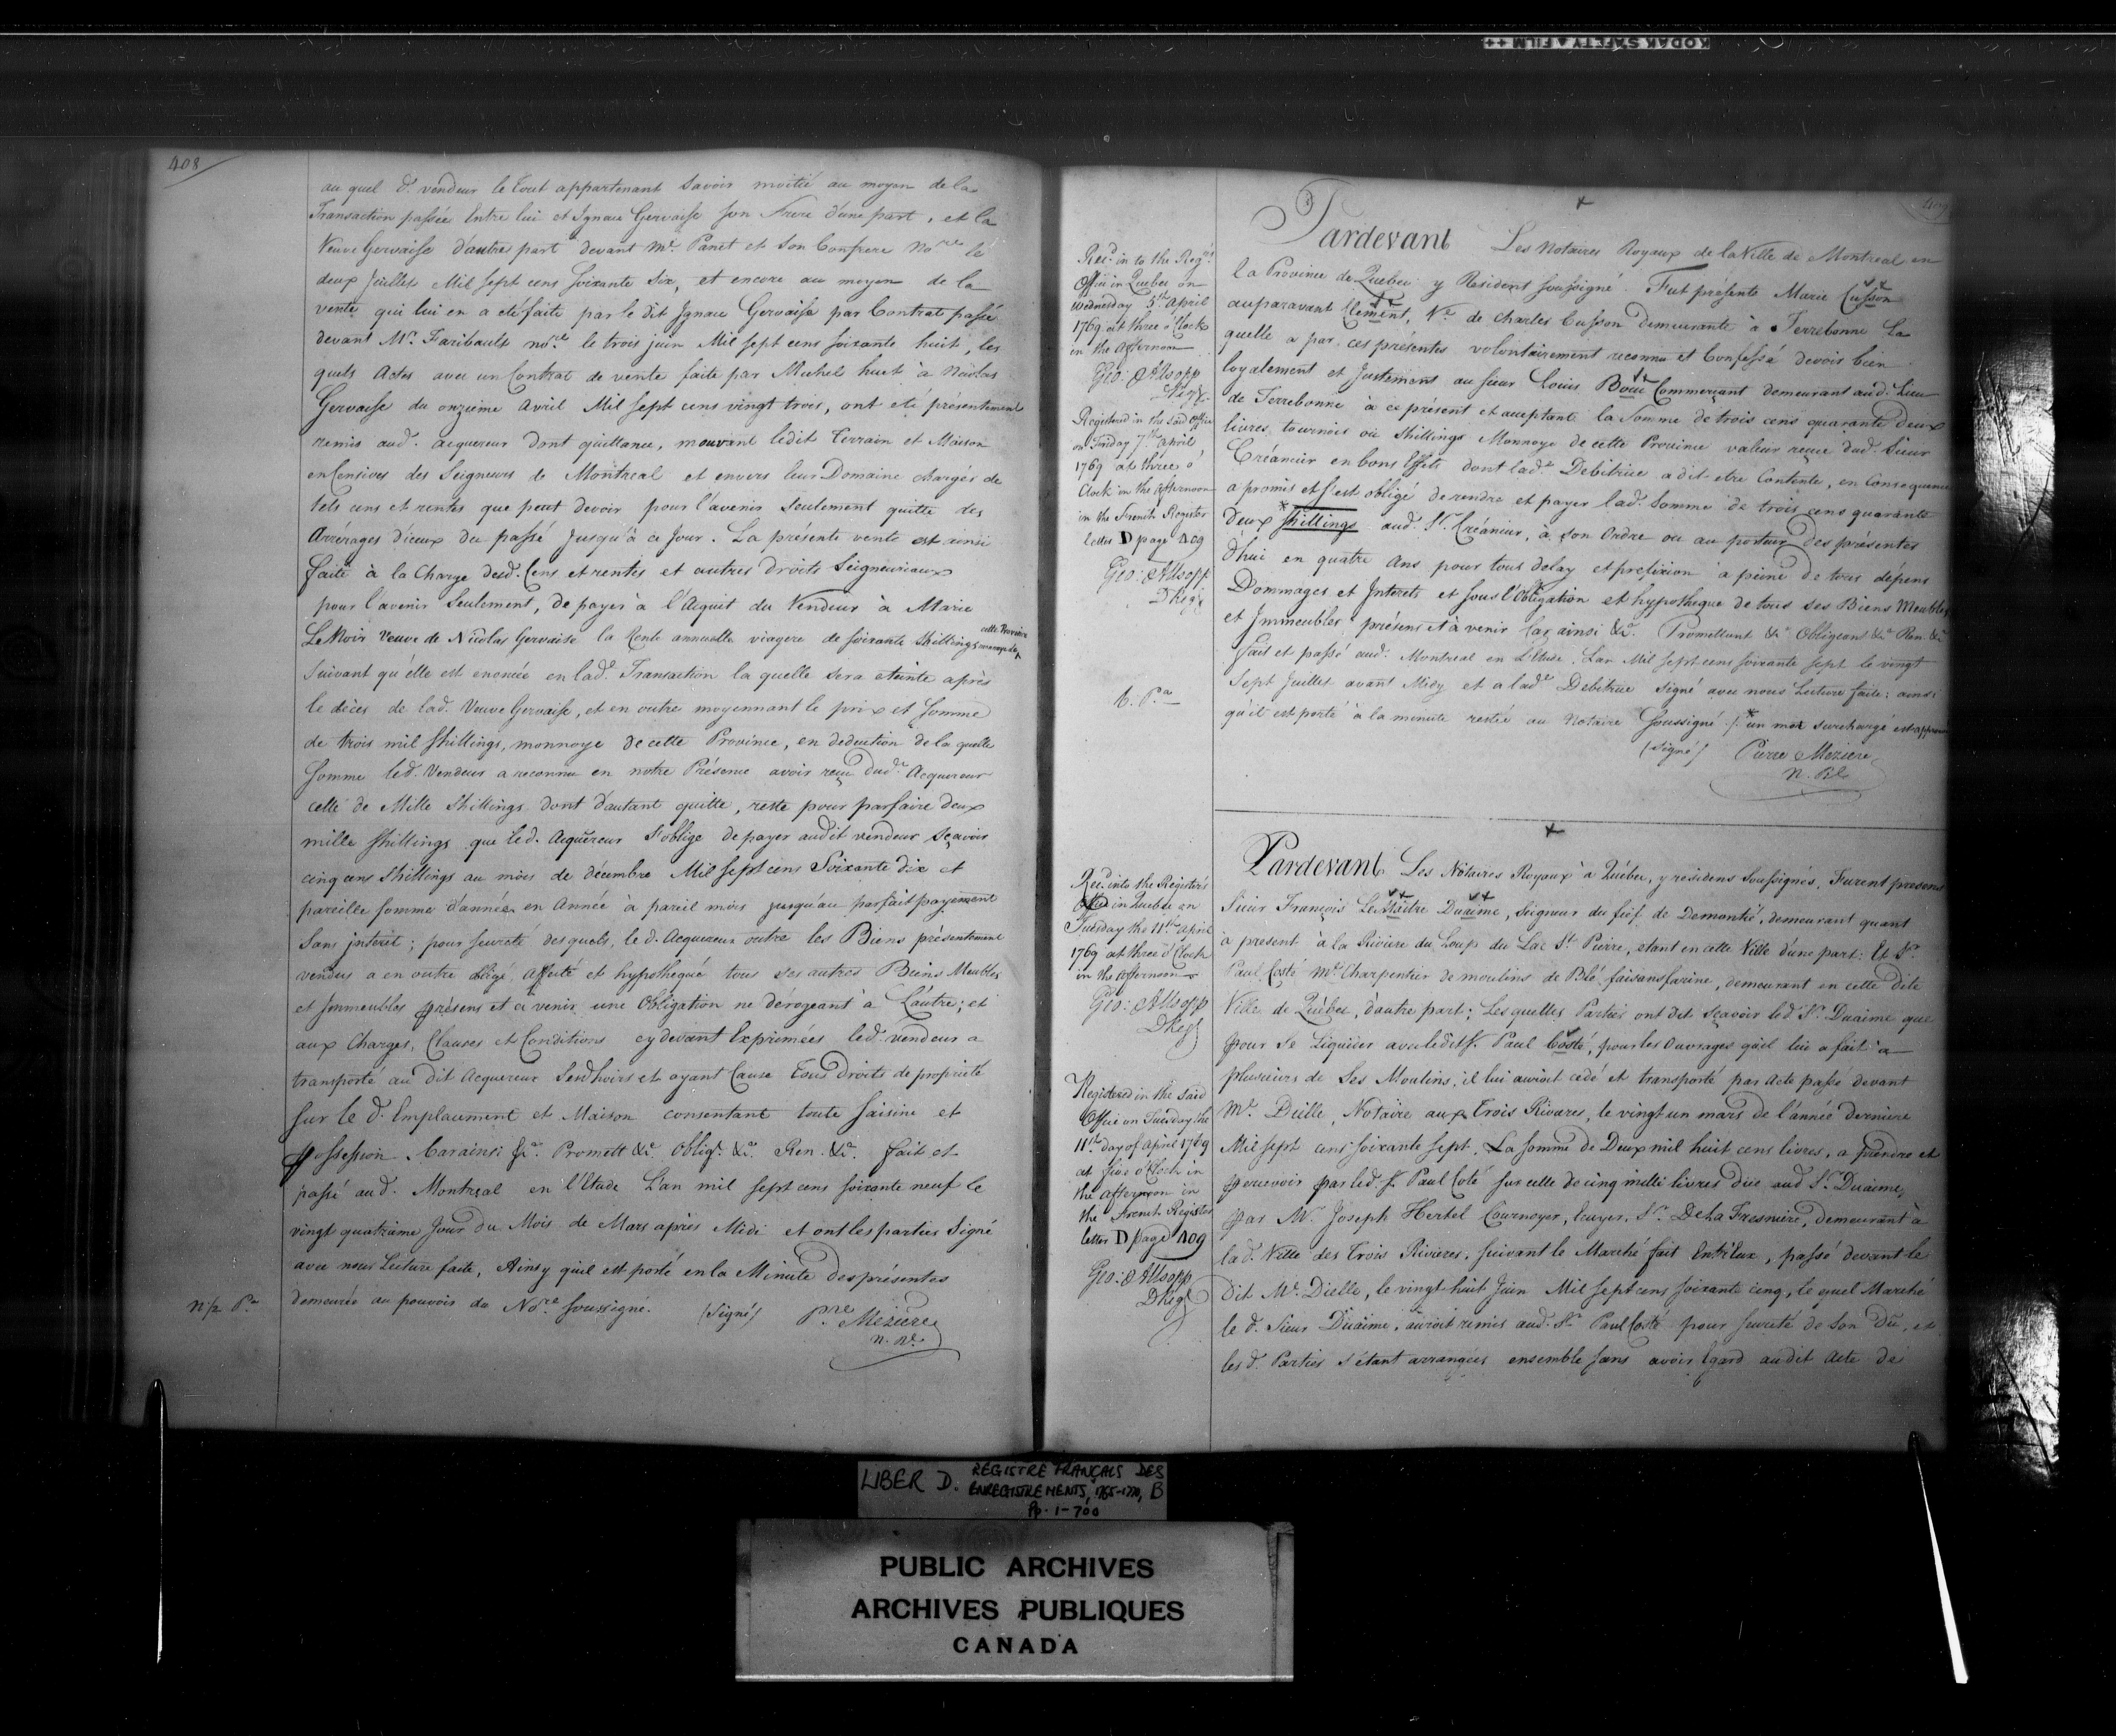 KODAK SAFETY A FILM ++
408
au quel d. vendeur le tout appartenant Savoir moitié au moyen de la
Transaction passée Entre lui et Ignace Gervaise son Frere d'une part, et la
Veuve Gervaise d'autre part devant Me. Panet et son Confrere Nores le
deux Juillet Mil sept cens soixante Six, et encore au moyen de la
vente qui lui en a eté faite par le dit Ignace Gervaise par Contrat passé
devant Mr. Faribault nore. le trois juin Mil sept cens soixante huit, les
quels Actes avec un Contrat de vente faite par Michel huet à Nicolas
Gervaise du onzieme Avril Mil sept cens vingt trois, ont eté présentement
remis aud. acquereur dont quittance, mouvant ledit Terrain et Maison
en Censives des Seigneurs de Montreal et envers leur Domaine chargés de
tels cens et rentes que peut devoir pour l'avenir seulement quitte des
Arrérages d'iceux du passé jusqu'à ce Jour. La présente vente est ainsi
faite à la Charge desd. Cens et rentes et autres droits Seigneuriaux
pour l'avenir Seulement, de payer à l'Acquit du Vendeur à Marie
LeNoir Veuve de Nicolas Gervaise la Rente annuelle viagere de soixante Shillings cette Province
Suivant qu'elle est enoncée en lad.e Transaction la quelle sera eteinte après
le décès de lad. Veuve Gervaise, et en outre moyennant le prix et somme
de trois mil shillings, monnoye de cette Province, en deduction de la quelle
somme led. Vendeur a reconnu en notre Présence avoir reçu dud. Acquereur
celle de Mille Shillings dont d'autant quitte, reste pour parfaire deux
mille shillings que led. Acquereur s'oblige de payer audit vendeur sçavoir
cinq cens shillings au mois de décembre Mil sept cens Soixante dix et
pareille somme d'année en Année à pareil mois jusqu'au parfait payement
Sans interêt; pour seureté desquels, le d. Acquereur outre les Biens présentement
vendus a en outre obligé, affecté et hypothequé tous ses autres Biens Meubles
et Immeubles présens et à venir une Obligation ne dérogeant à L'autre; et
aux Charges, Clauses et Conditions cy devant Exprimées led. vendeur a
transporté au dit Acquereur Sesd. hoirs et ayant Cause Tous droits de propriété
sur le d. Emplacement et Maison consentant toute saisine et
possession. Car ainsi &a. Promett &c. Oblig. &a. Ren. &a. fait et
passé aud. Montreal en l'Etude L'an mil sept cens soixante neuf le
vingt quatrieme Jour du Mois de Mars après Midi et ont les parties Signé
avec nous Lecture faite, Ainsy qu'il est porté en la Minute des présentes
demeurée au pouvoir du Nore. soussigné. (Signé) Pre. Mezierre
n. Re.
n/2 Pa
409
Rec.d in to the Reg.rs
Office in Quebec on
Wednesday 5th April
1769 at three o'Clock
in the afternoon
Geo: Allsopp
DReg.
Registered in the said Office
on Friday 7th April
1769 at three o'
Clock in the afternoon
in the French Register
letter D page 409
Geo: Allsopp
DReg.
Pardevant Les Notaires Royaux de la Ville de Montreal en
la Province de Quebec y Resident soussigné. Fut présente Marie Cusson
auparavant Clement, Ve. de Charles Cusson demeurante à Terrebonne La
quelle a par ces présentes volontairement reconnu et Confessé devoir bien
loyalement et Justement au sieur Louis Boue Commerçant demeurant aud. Lieu
de Terrebonne à ce présent et acceptant la Somme de trois cens quarante deux
livres tournois ou Shillings Monnoye de cette Province valeur reçue dud. Sieur
Créancier en bons Effets dont lad.e Debitrice a dit etre Contente, en Consequence
a promis et s'est obligé de rendre et payer lad. Somme de trois cens quarante
Deux * shillings aud. Sr. Créancier, à son Ordre ou au porteur des présentes
d'hui en quatre Ans pour tout delay et prefixion à peine de tous dépens
Dommages et Interets et sous l'Obligation et hypotheque de tous ses Biens Meubles
et Immeubles présens et à venir Car ainsi &a. Promettant &a. Obligeant &a. Ren. &a.
fait et passé aud. Montreal en L'Etude. L'an Mil sept cens soixante sept le vingt
Sept Juillet avant Midy et a lad.e Debitrice Signé avec nous Lecture faite: ainsi
qu'il est porté à la minute restée au Notaire Soussigné./. * un mot surchargé est approuvé
(Signé) Pierre Meziere
N. Rl.
C. Pa
Rec.d into the Register's
Office in Quebec on
Tuesday the 11th April
1769 at three o'Clock
in the afternoon
Geo: Allsopp
DReg.
Registered in the said
Office on Tuesday the
11th day of April 1769
at five o'Clock in
the afternoon in
the French Register
letter D page 409
Geo: Allsopp
DReg.
Pardevant Les Notaires Royaux à Québec, y residens Soussignés, Furent presens
Sieur François LeMaitre Duaime, Seigneur du fief de Demontié, demeurant quant
à present à la Riviere du Loup du Lac St. Pierre, etant en cette Ville d'une part: Et Sr.
Paul Costé Me. Charpentier de moulins de Blé faisans farine, demeurant en cette dite
Ville de Québec, d'autre part; Les quelles Parties ont dit Sçavoir led. Sr. Duaime que
pour se Liquider avec ledit Sr. Paul Costé, pour les Ouvrages qu'il lui a fait à
plusieurs de Ses Moulins, il lui auroit cedé et transporté par Acte passé devant
Me. Dielle, Notaire aux Trois Rivieres, le vingt un mars de l'année derniere
Mil sept cens soixante sept. La somme de Deux mil huit cens livres, a prendre et
percevoir par led. Sr. Paul Coté sur celle de cinq mille livres due aud. Sr. Duaime,
par Mr. Joseph Hertel Cournoyer, Ecuyer, Sr. De La Fresniere, demeurant à
lad. Ville des Trois Rivieres, suivant le Marché fait Entr'Eux, passé devant le
dit Me. Dielle, le vingt huit Juin Mil sept cens soixante cinq, le quel Marché
le d. Sieur Duaime, auroit remis aud. Sr. Paul Costé pour sureté de Son Dû, et
les d. Parties s'étant arrangées ensemble sans avoir Egard audit Acte de
LIBER D. REGISTRE FRANÇAIS DES
ENREGISTREMENTS, 1765-1770, B
Pp. 1-700
PUBLIC ARCHIVES
ARCHIVES PUBLIQUES
CANADA